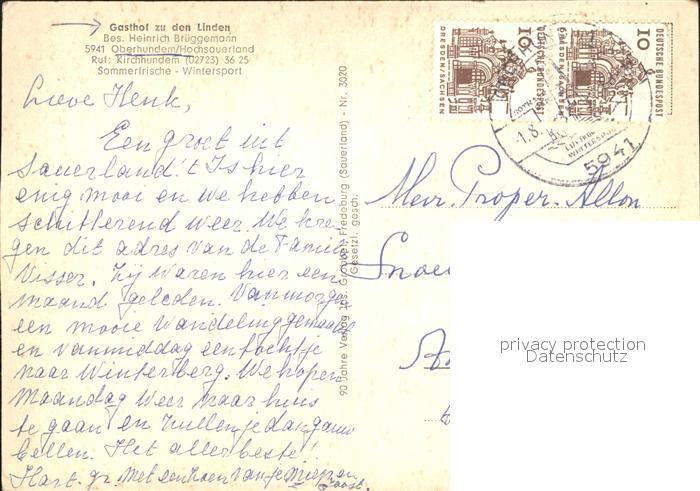 Gasthof zu den Linden
Bes. Heinrich Brüggemann
5941 Oberhundem/Hochsauerland
Ruf: Kirchhundem (02723) 36 25
Sommerfrische - Wintersport
Lieve Henk,
Een groet uit
Sauerland. 't Is hier
enig mooi en we hebben
schitterend weer. We kre-
gen dit adres van de Familie
Visser. Zij waren hier een
maand geleden. Vanmorgen
een mooie wandeling gemaakt
en vanmiddag een tochtje
naar Winterberg. We hopen
Maandag weer naar huis
te gaan en zullen je dan gauw
bellen. Het allerbeste!
Hart. gr. met een van je Miep en
Joost.
90 Jahre Verlag Jos. Grobbel, Fredeburg (Sauerland) - Nr. 3020
Gesetzl. gesch.
10
DEUTSCHE BUNDESPOST
DRESDEN/SACHSEN
10
DEUTSCHE BUNDESPOST
DRESDEN/SACHSEN
-1.8.
WINTERSPORT
5941
Mevr. Proper-Allon
privacy protection
Datenschutz